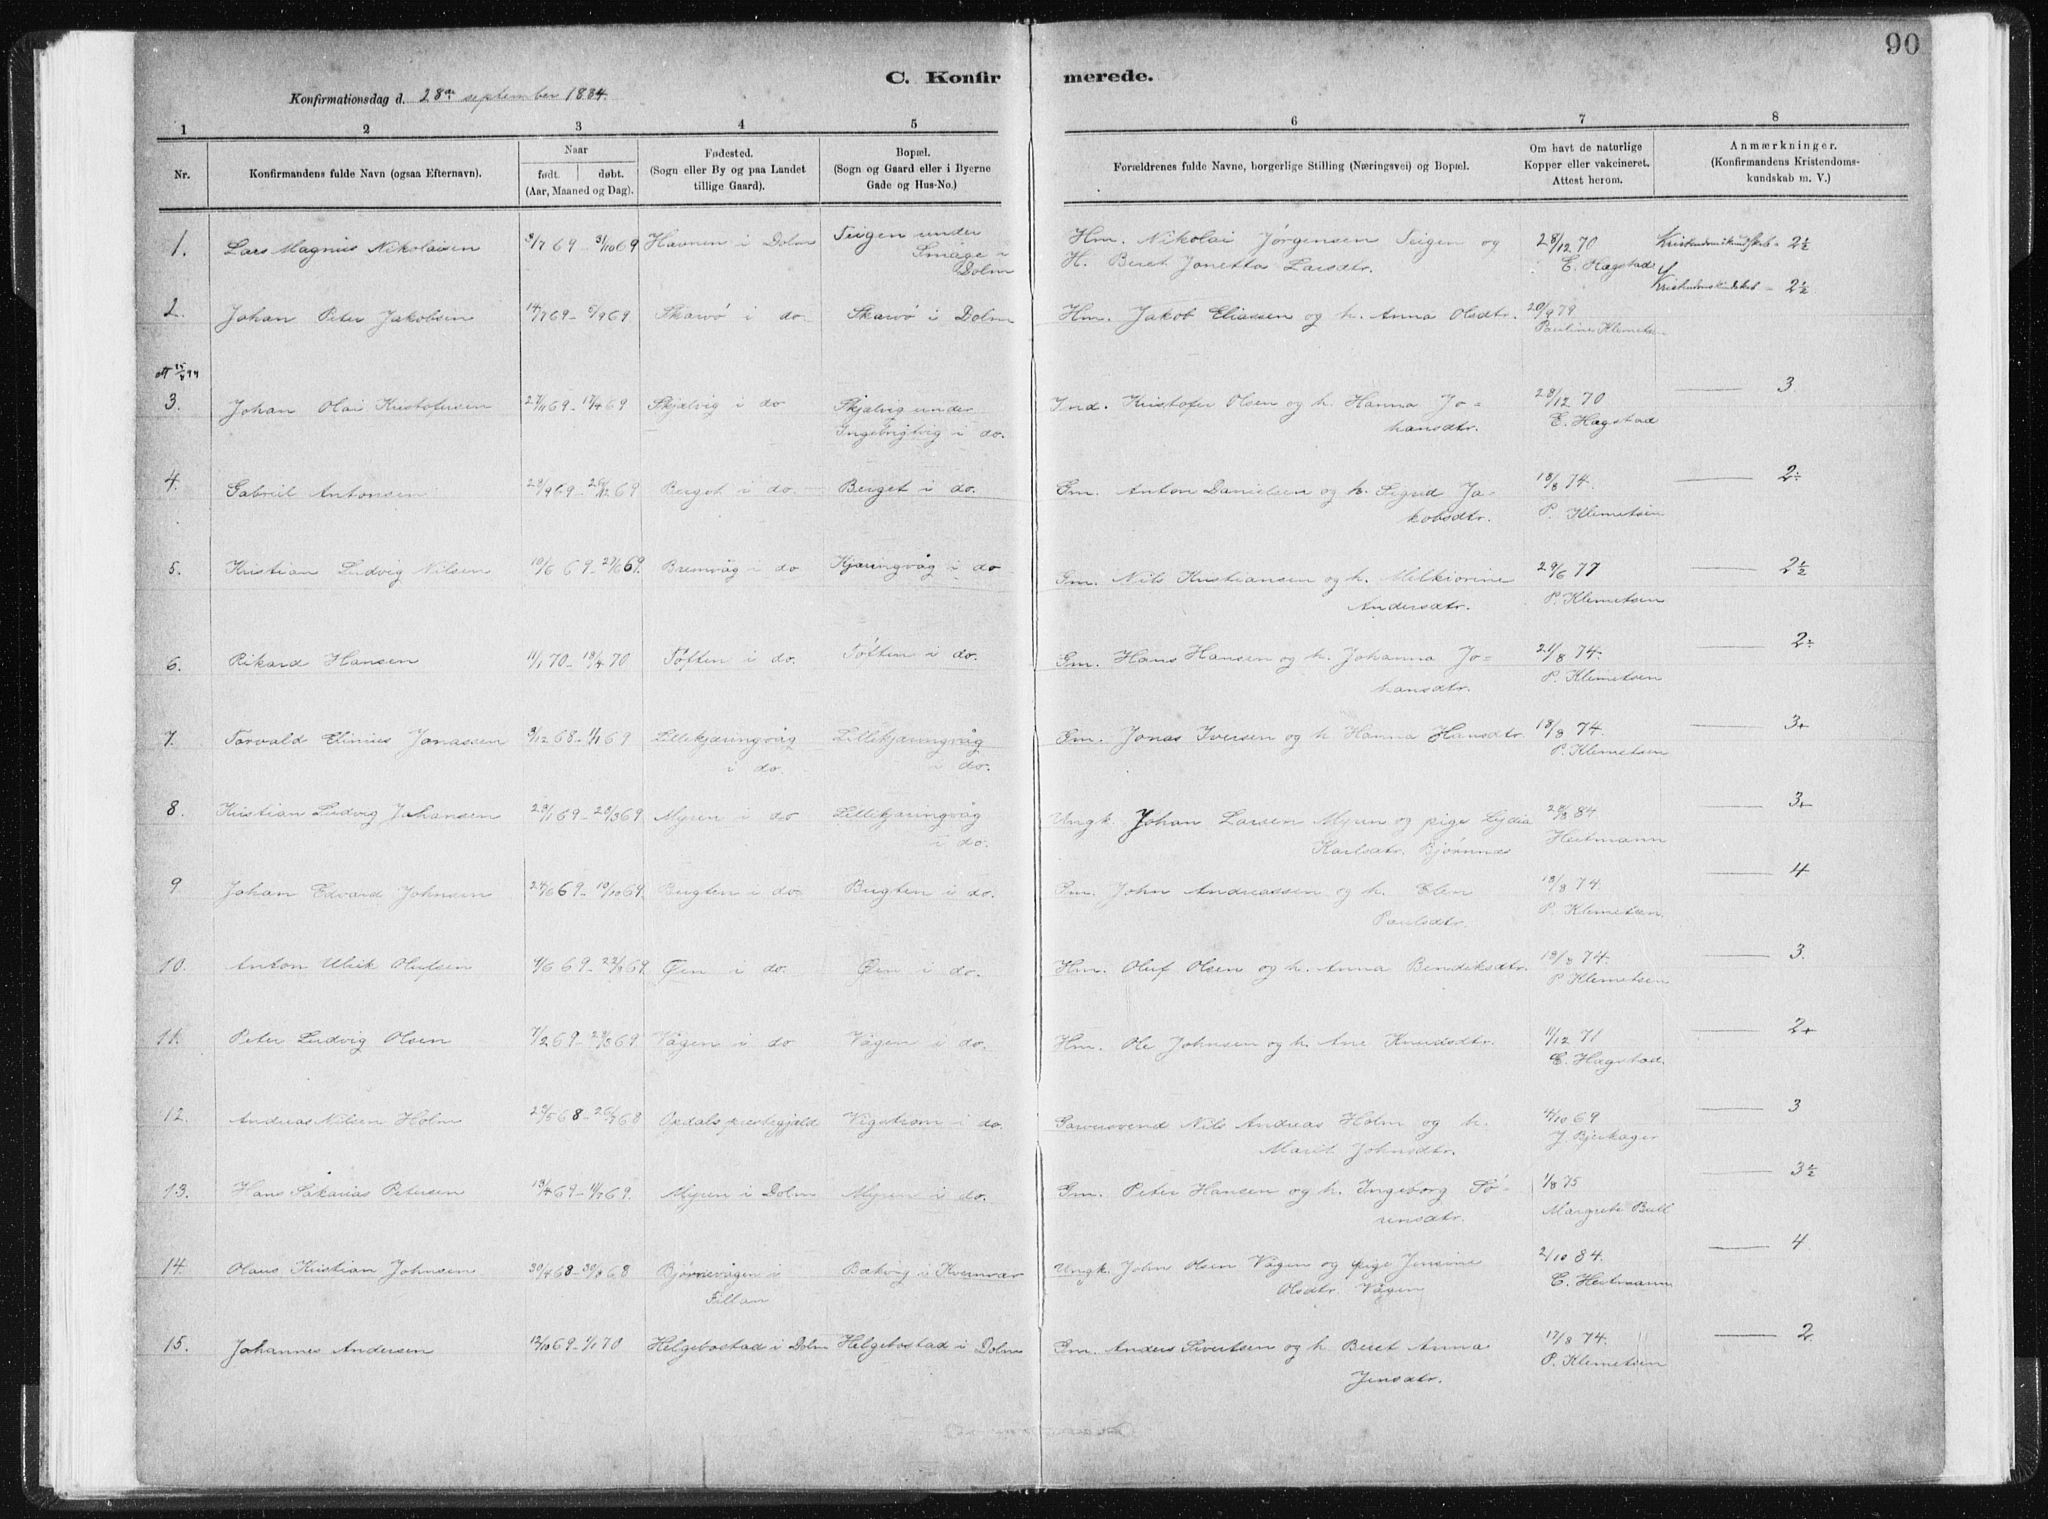 90
C. Konfirmerede.
Konfirmationsdag d. 28de september 1884.
1 2 3 4 5 6 7 8
Nr. Konfirmandens fulde Navn (ogsaa Efternavn). Naar født. døbt. (Aar, Maaned og Dag). Fødested. (Sogn eller By og paa Landet tillige Gaard). Bopæl. (Sogn og Gaard eller i Byerne Gade og Hus-No.) Forældrenes fulde Navne, borgerlige Stilling (Næringsvei) og Bopæl. Om havt de naturlige Kopper eller vakcineret. Attest herom. Anmærkninger. (Konfirmandens Kristendomskundskab m. V.)
1. Lars Magnus Nikolaisen 3/7 69 - 3/10 69 Havnen i Dolm Teigen under Smäge i Dolm Hm. Nikolai Jørgensen Teigen og H. Beret Jonetta Larsdtr. 28/12 70 E. Hagstad Kristendomskundskab - 2½
2. Johan Peter Jakobsen 14/7 69 - 5/9 69 Skarvö i do. Skarvö i Dolm Hm. Jakob Eliassen og h. Anna Olsdtr. 20/9 79 Pauline Klemetsen Kristendomskundskab - 2½
3. Johan Olai Kristofersen Skjælvig i do Skjælvig under Ingebrigtvig i do. Ind. Kristofer Olsen og h. Hanna Johansdtr. 28/12 70 E. Hagstad 3
4. Gabriel Antonsen 28/9 69 - 26/12 69 Berget i do Berget i do. Gm. Anton Danielsen og h. Sigrid Jakobsdtr. 18/8 74. P. Klemetsen
5. Kristian Ludvig Nilsen Bremvåg i do Kjæringvåg i do Gm. Nils Kristiansen og h. Milkiorine Andersdtr. 29/6 77 P. Klemetsen 2½
6. Rikard Hansen 11/1 70 - 18/4 70 Töften i do. Töften i do. Gm. Hans Hansen og h. Johanna Johansdtr. 21/8 74. P. Klemetsen
7. Torvald Elinius Jonassen 3/12 68 - 1/1 69 Lillekjæringvåg i do. Lillekjæringvåg i do. Gm. Jonas Iversen og h. Hanna Hansdtr. 18/8 74. P. Klemetsen 3+
8. Kristian Ludvig Johansen 23/1 69 - 28/3 69 Myren i do Lillekjæringvåg i do. Ungk. Johan Larsen Myren og pige Lydia Karlsdtr. Bjørnnes 84 Heitmann 3+
9. Johan Edvard Johnsen Bugten i do. Bugten i do. Gm. John Andreassen og h. Elen Paulsdtr. 18/8 74. P. Klemetsen 4
10. Anton Ulrik Olufsen Øen i do. Øen i do. Hm. Oluf Olsen og h. Anna Bendiksdtr. 18/8 74. P. Klemetsen 3.
11. Peter Ludvig Olsen 7/2 69 - Vågen i do Vågen i do. Hm. Ole Johnsen og h. Ane Knudsdtr. 11/12 71 E. Hagstad. 2+
12. Andreas Nilsen Holm Opdals præstegjæld Vigstrøm i do Garversvend Nils Andreas Holm og h. Marit Johnsdtr. 4/10 69 J. Bjerkager 3
13. Hans Sakarias Petersen Myren i Dolm Myren i do. Gm. Peter Hansen og h. Ingeborg Sörensdtr. 1/8 75 Margrete Bull 3½
14. Olaus Kristian Johnsen Bjørnevågen i Fillan Bækvig i Kvernvær Ungk. John Olsen Vågen og pige Jensine Olsdtr. Vågen 2/10 84. C. Heitmann 4
15. Johannes Andersen 12/10 69 - 1/1 70 Helgebostad i Dolm Helgebostad i Dolm Gm. Anders Sivertsen og h. Beret Anna Jensdtr. 17/8 74. P. Klemetsen 2